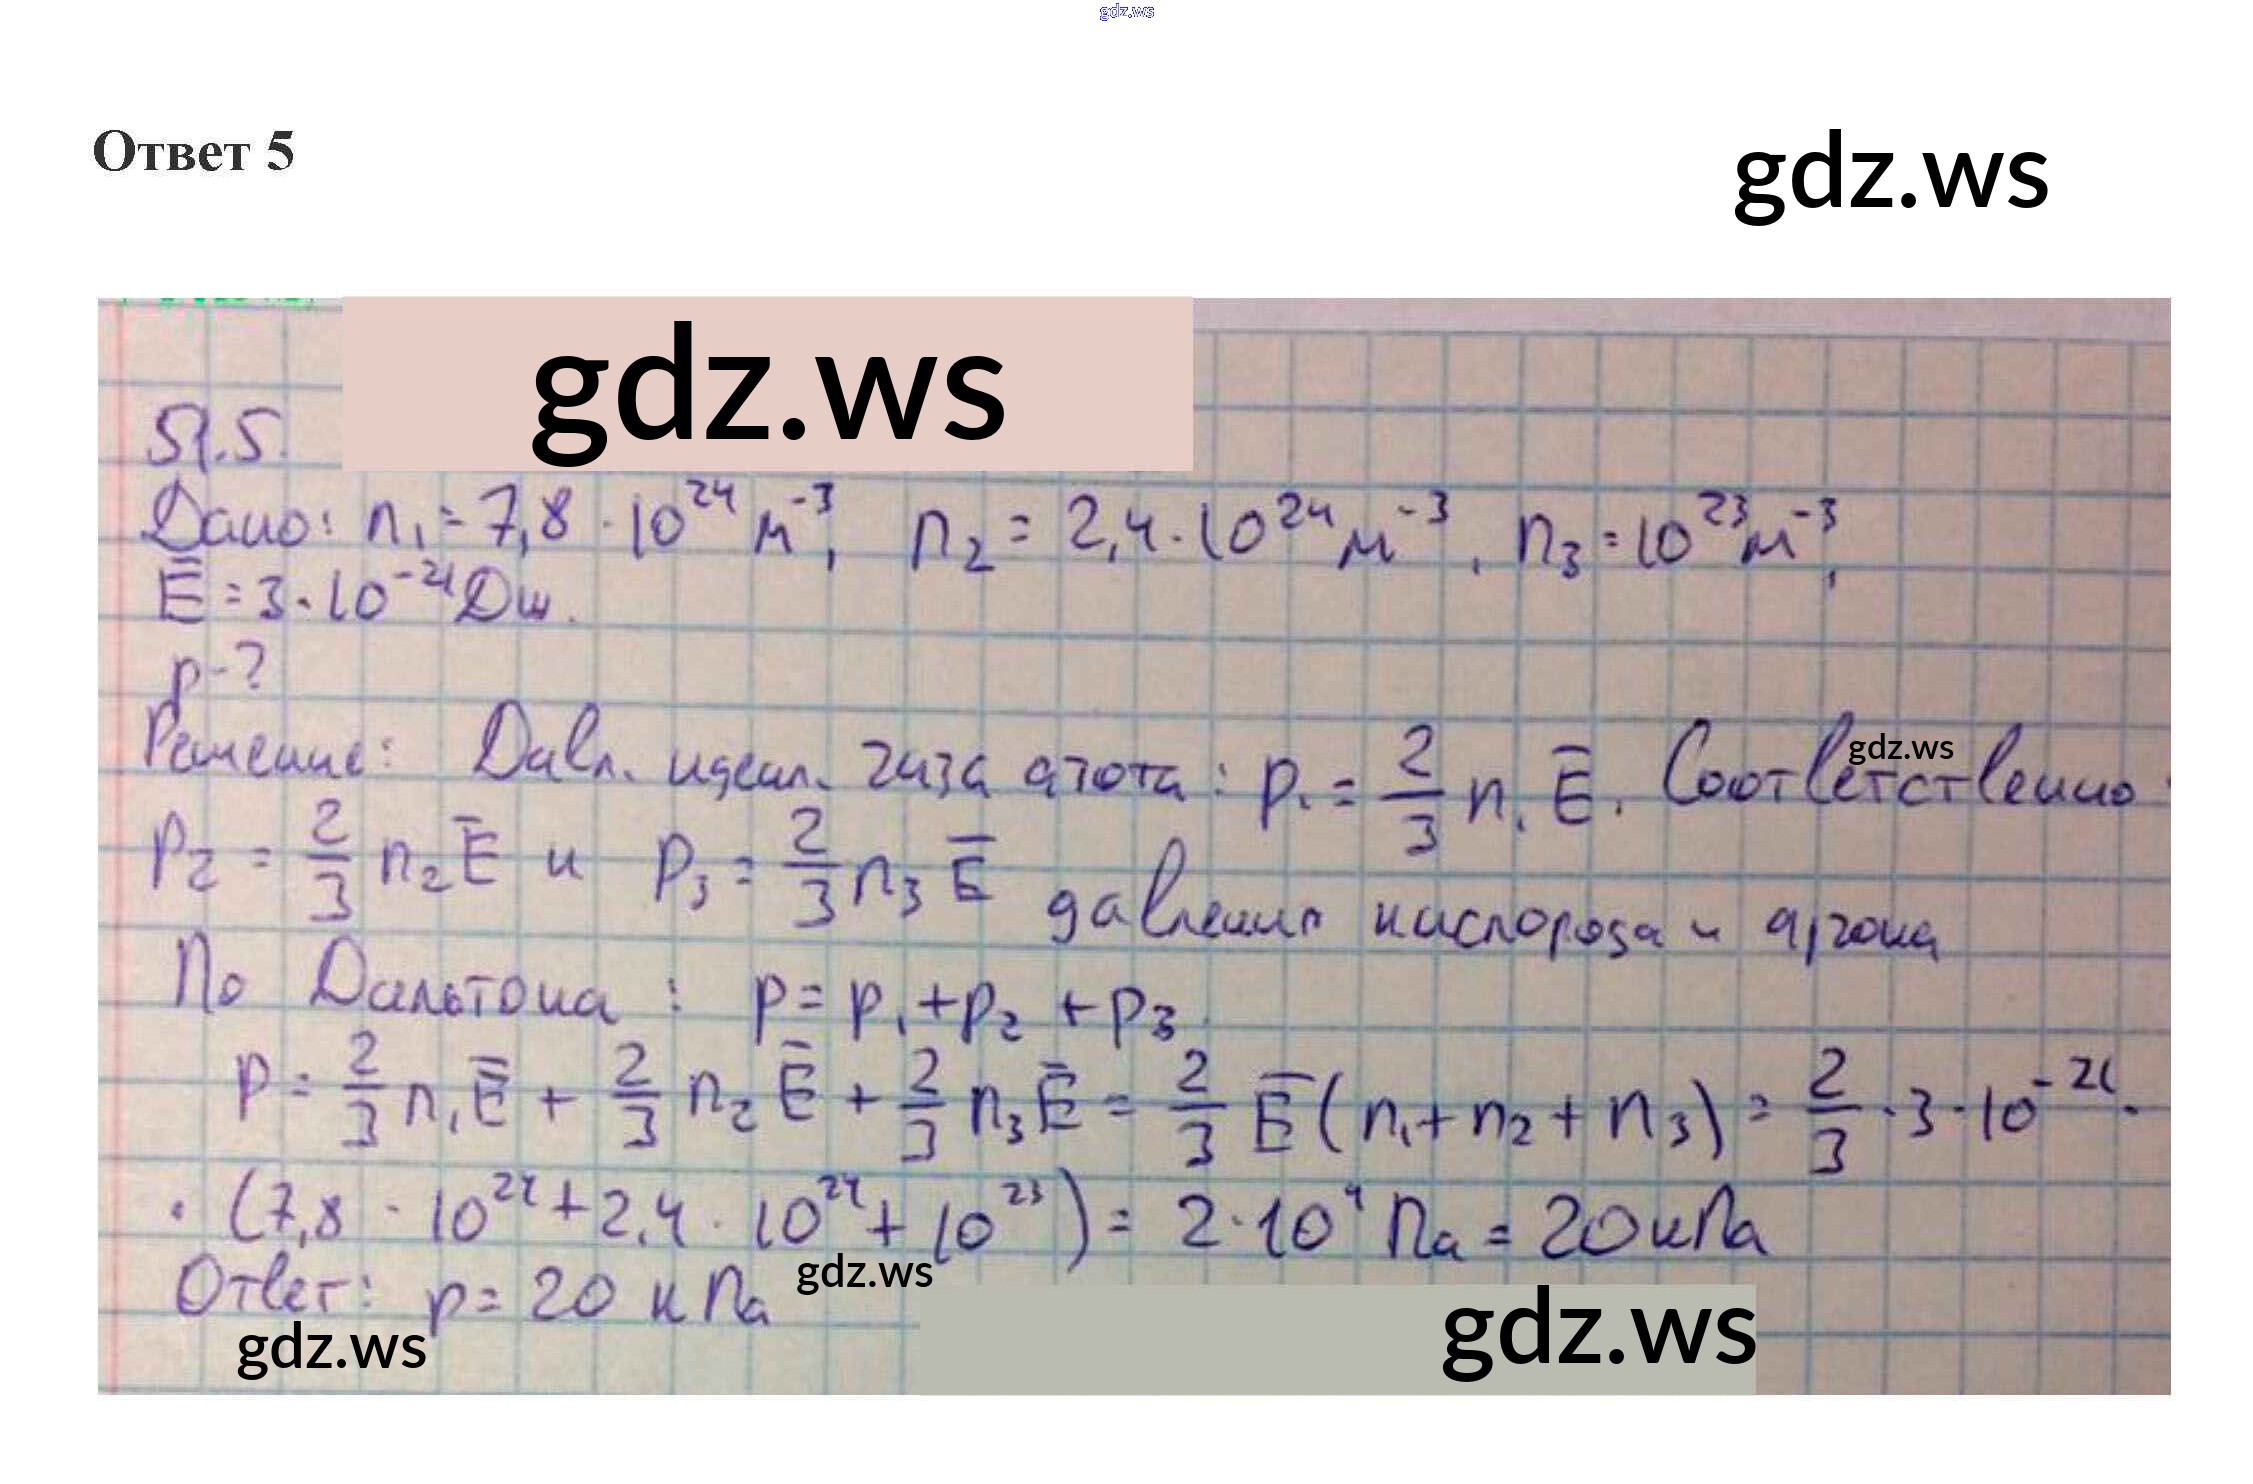 gdz.ws
Ответ 5
gdz.ws
gdz.ws
Я.5.
Дано: n₁ = 7,8 · 10²⁴ м⁻³, n₂ = 2,4 · 10²⁴ м⁻³, n₃ = 10²³ м⁻³,
E̅ = 3 · 10⁻²¹ Дж.
p - ?
Решение: Давл. идеал. газа азота: p₁ = 2/3 n₁ E̅. Соответственно:
gdz.ws
p₂ = 2/3 n₂ E̅ и p₃ = 2/3 n₃ E̅ давления кислорода и аргона
По Дальтона: p = p₁ + p₂ + p₃.
p = 2/3 n₁ E̅ + 2/3 n₂ E̅ + 2/3 n₃ E̅ = 2/3 E̅ (n₁ + n₂ + n₃) = 2/3 · 3 · 10⁻²¹ ·
· (7,8 · 10²⁴ + 2,4 · 10²⁴ + 10²³) = 2 · 10⁴ Па = 20 кПа
Ответ: p = 20 кПа
gdz.ws
gdz.ws
gdz.ws